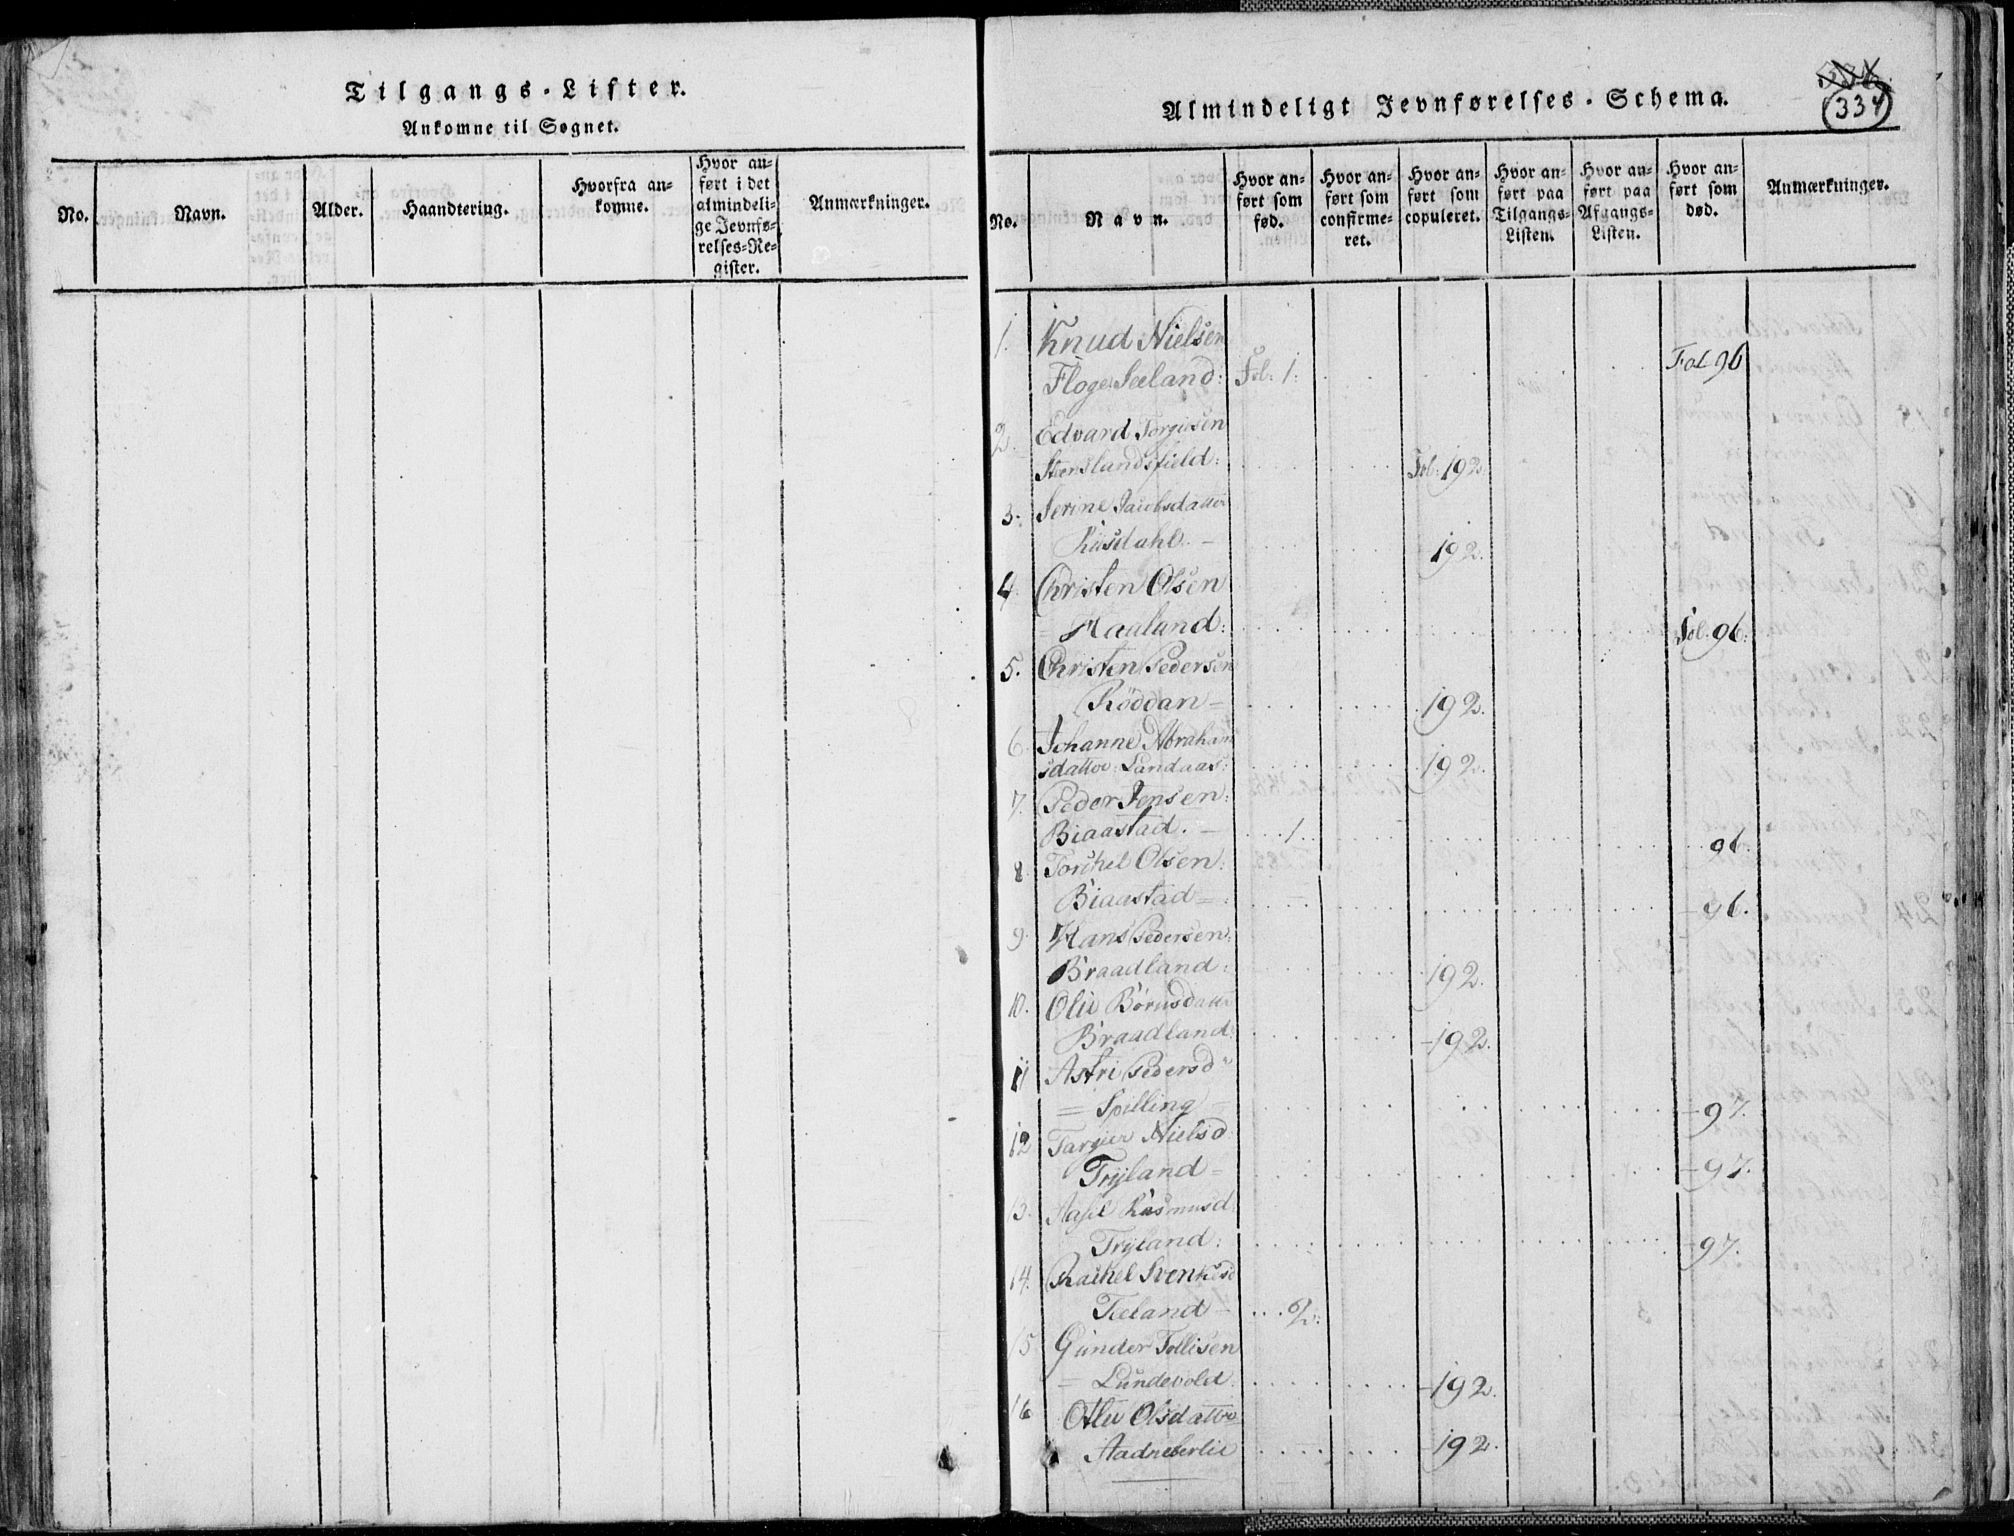 Tilgangs-Lister.
Ankomne til Sognet.
No.
Navn.
Alder.
Haandtering.
Hvorfra an-
komne.
Hvor an-
ført i det
almindeli-
ge Jevnfø-
relses-Re-
gister.
Anmærkninger.
Almindeligt Jevnførelses-Schema.
334
No.
Navn.
Hvor an-
ført som
fød.
Hvor an-
ført som
confirme-
ret.
Hvor an-
ført som
copuleret.
Hvor an-
ført paa
Tilgangs-
Listen.
Hvor an-
ført paa
Afgangs-
Listen.
Hvor an-
ført som
død.
Anmærkninger.
1. Knud Nielsen
Floge Seeland: Fol: 1. Fol 96
2. Edvard Torgiusen
Stenslandsfield: Fol: 192.
3. Serine Jacobsdatter
Risdahl. – 192.
4. Christen Olsen
Haaland: Fol. 96.
5. Christen Pedersen
Röddan = 192.
6. Johanne Abraham
sdatter Landaas: 192.
7. Peder Jensen:
Biaastad. – 1. 96.
8. Torchel Olsen:
Biaastad = – 96.
9. Hans Pedersen:
Braadland: 192.
10. Olie Börnsdatter
Braadland – 192.
11 Astri Pedersd
= Spilling – 97.
12 Nielsd
Tryland = – 97.
13. Rasmusd
Tryland: – 97.
14. Rachel Svenkesd
– 2.
15 Gunder Tollisen
= Lundevold. – 192.
16 Olsdatter
– 192.